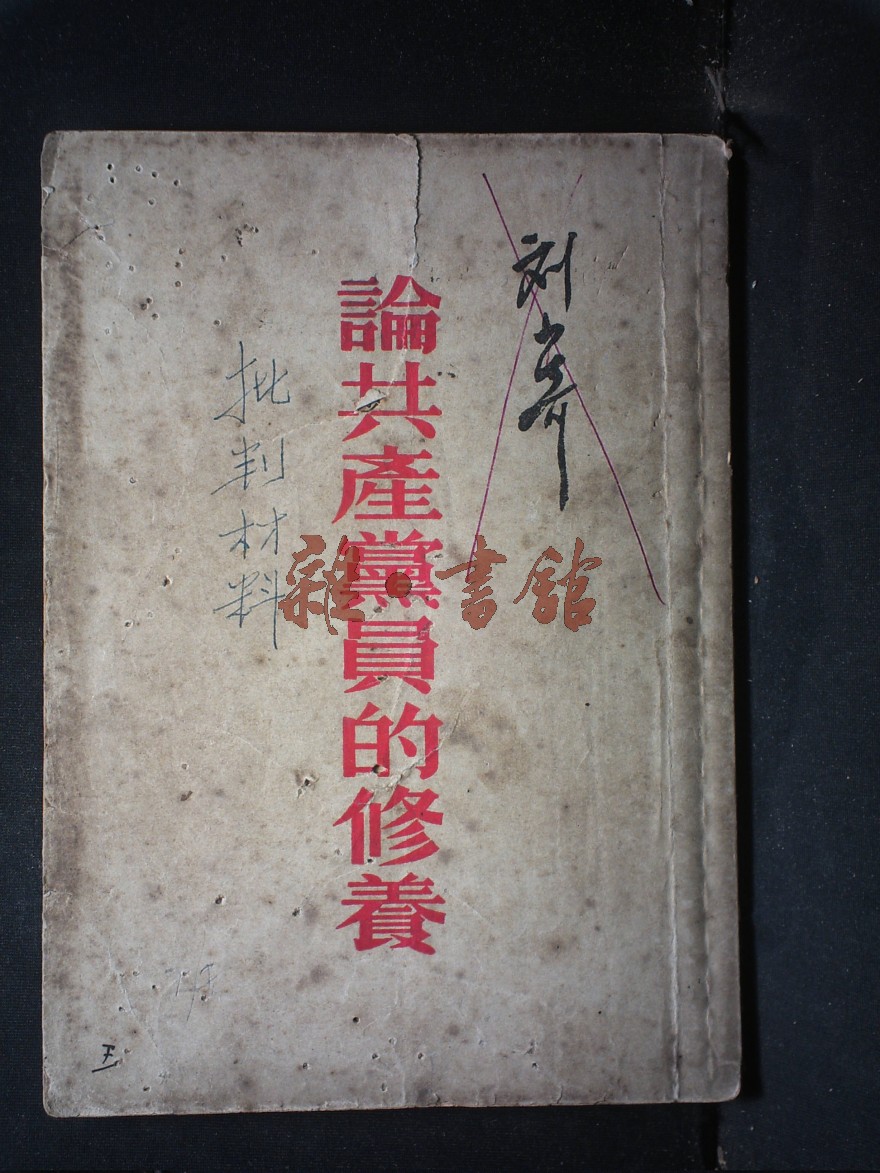 刘少奇
論共產黨員的修養
批判材料
雜·書館